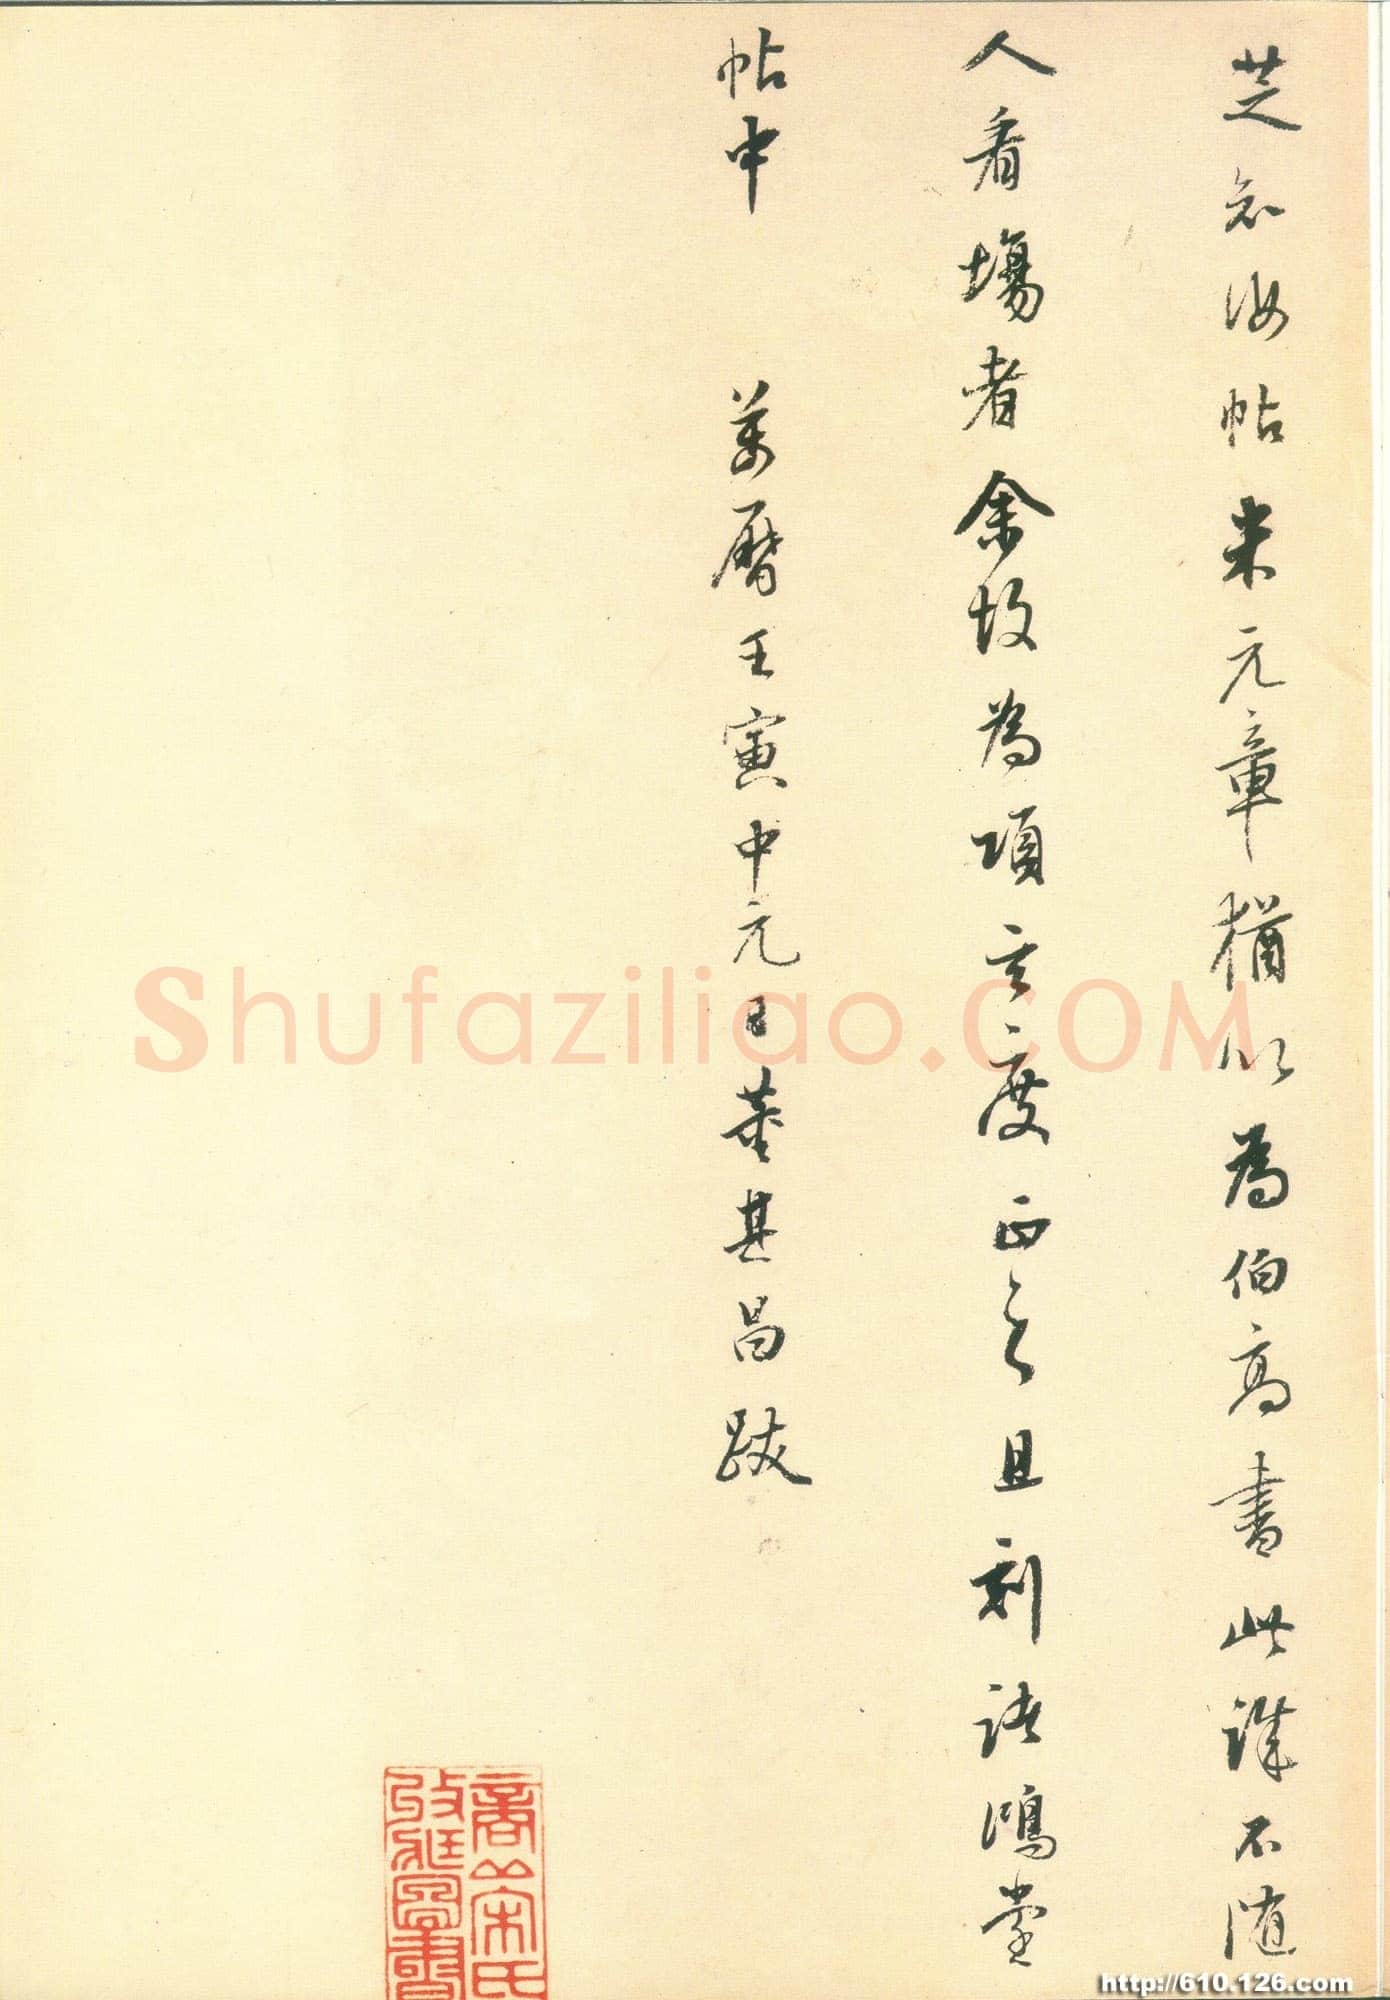 芝知汝帖米元章猶以為伯高書此不随
人看場者余故為項玄度正之且刻諸鴻堂
帖中 萬曆壬寅中元日董其昌跋
商丘宋氏
收藏圖書
Shufaziliao.COM
http://610.126.com